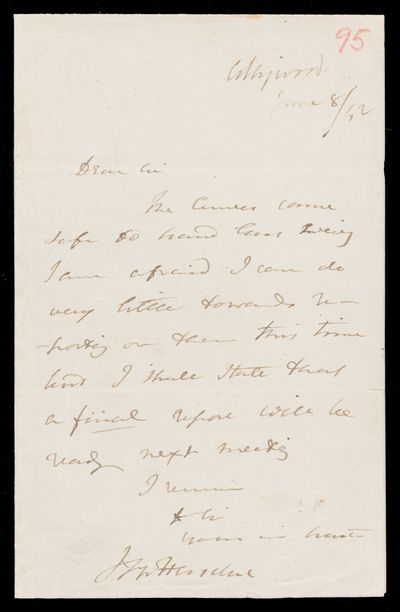 95
Collingwood
June 8/52
Dear Sir
The Curves came
safe to hand last
I am afraid I can do
very little towards re-
-porting on them this time
but I shall state that
a final report will be
ready next meeting
I remain
Sir
yours in haste
JFWHerschel